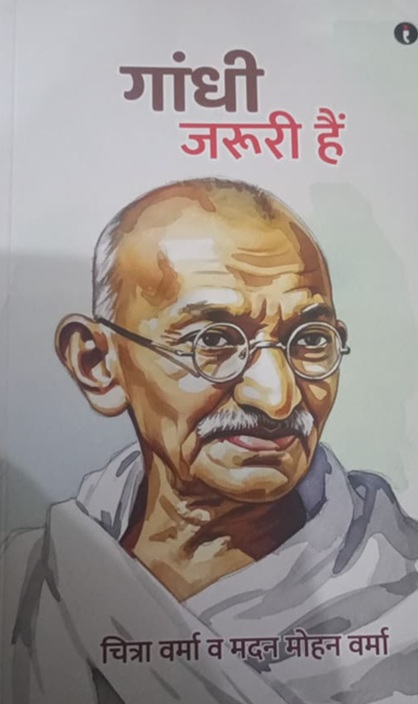 गांधी
जरूरी हैं
चित्रा वर्मा व मदन मोहन वर्मा